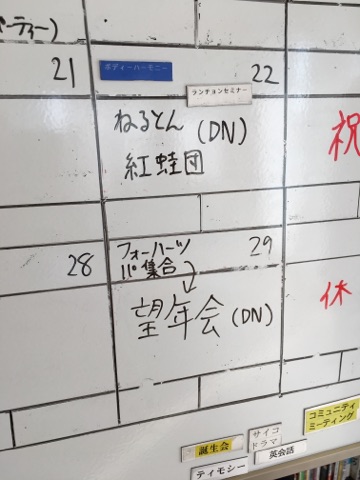 ーティー)
21
ボディーハーモニー
22
ランチョンセミナー
ねるとん (DN)
紅蛙団
祝
28
フォーハーツ
29
パパ集合
望年会 (DN)
休
誕生会
サイコ
ドラマ
コミュニティ
ミーティング
ティモシー
英会話